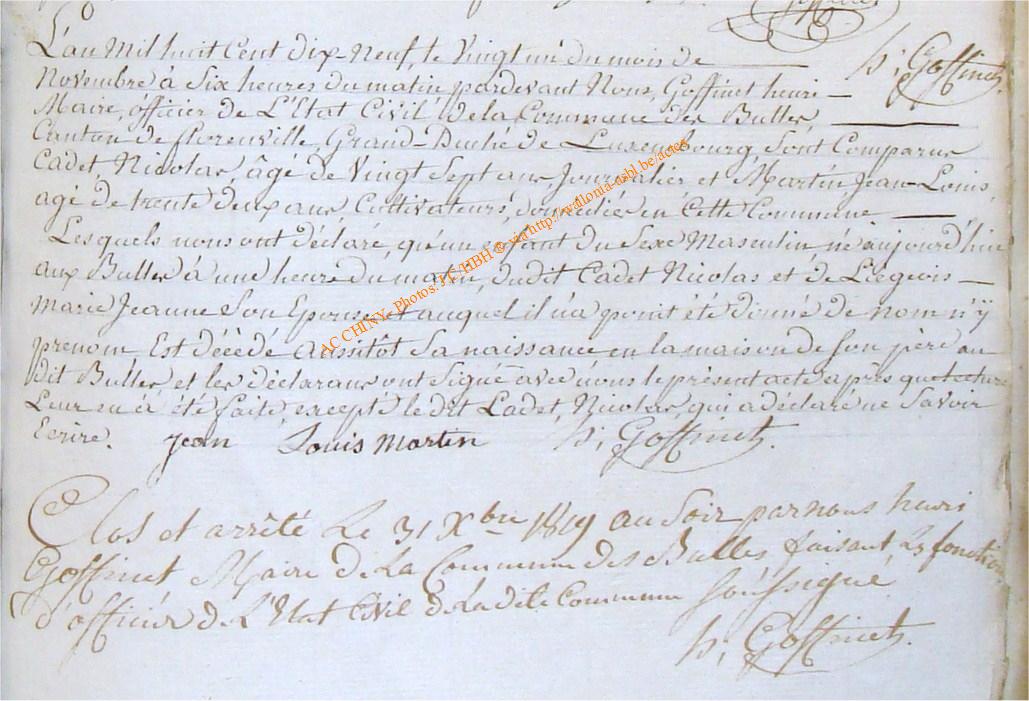 Goffinet
L'an Mil huit Cent dix-Neuf, le Vingt un du mois de
h; Goffinet.
Novembre à Six heures du matin, pardevant Nous, Goffinet henri
Maire, officier de L'Etat Civil de la Commune des Bulles
Canton de florenville, Grand-Duché de Luxembourg, Sont Comparus
Cadet, Nicolas, âgé de Vingt Sept ans Journalier, et Martin Jean-Louis
agé de trente deux ans Cultivateurs, domicilié en Cette Commune
Lesquels nous ont déclaré, qu'un enfant du Sexe Masculin né aujourd'hui
aux Bulles à une heure du matin, dudit Cadet Nicolas et de Liégeois
Marie Jeanne Son Epouse, et auquel il n'a point été donné de nom n'y
prenom Est décédé Aussitôt Sa naissance en la maison de Son père au
dit Bulles et les déclarans ont Signé avec nous le présent acte après que lecture
Leur en à été faite, excepté le dit Cadet, Nicolas, qui a déclaré ne Savoir
Ecrire. jean Louis martin h; Goffinet.
AC CHINY - Photos: J C HBH ® via http://wallonia-asbl.be/actes
Clos et arrêté Le 31 Xbre 1819 au Soir par nous henri
Goffinet Maire de La Commune des Bulles, faisant Les fonctions
d'officier de L'Etat Civil de La dite Commune Soussigné
h; Goffinet.